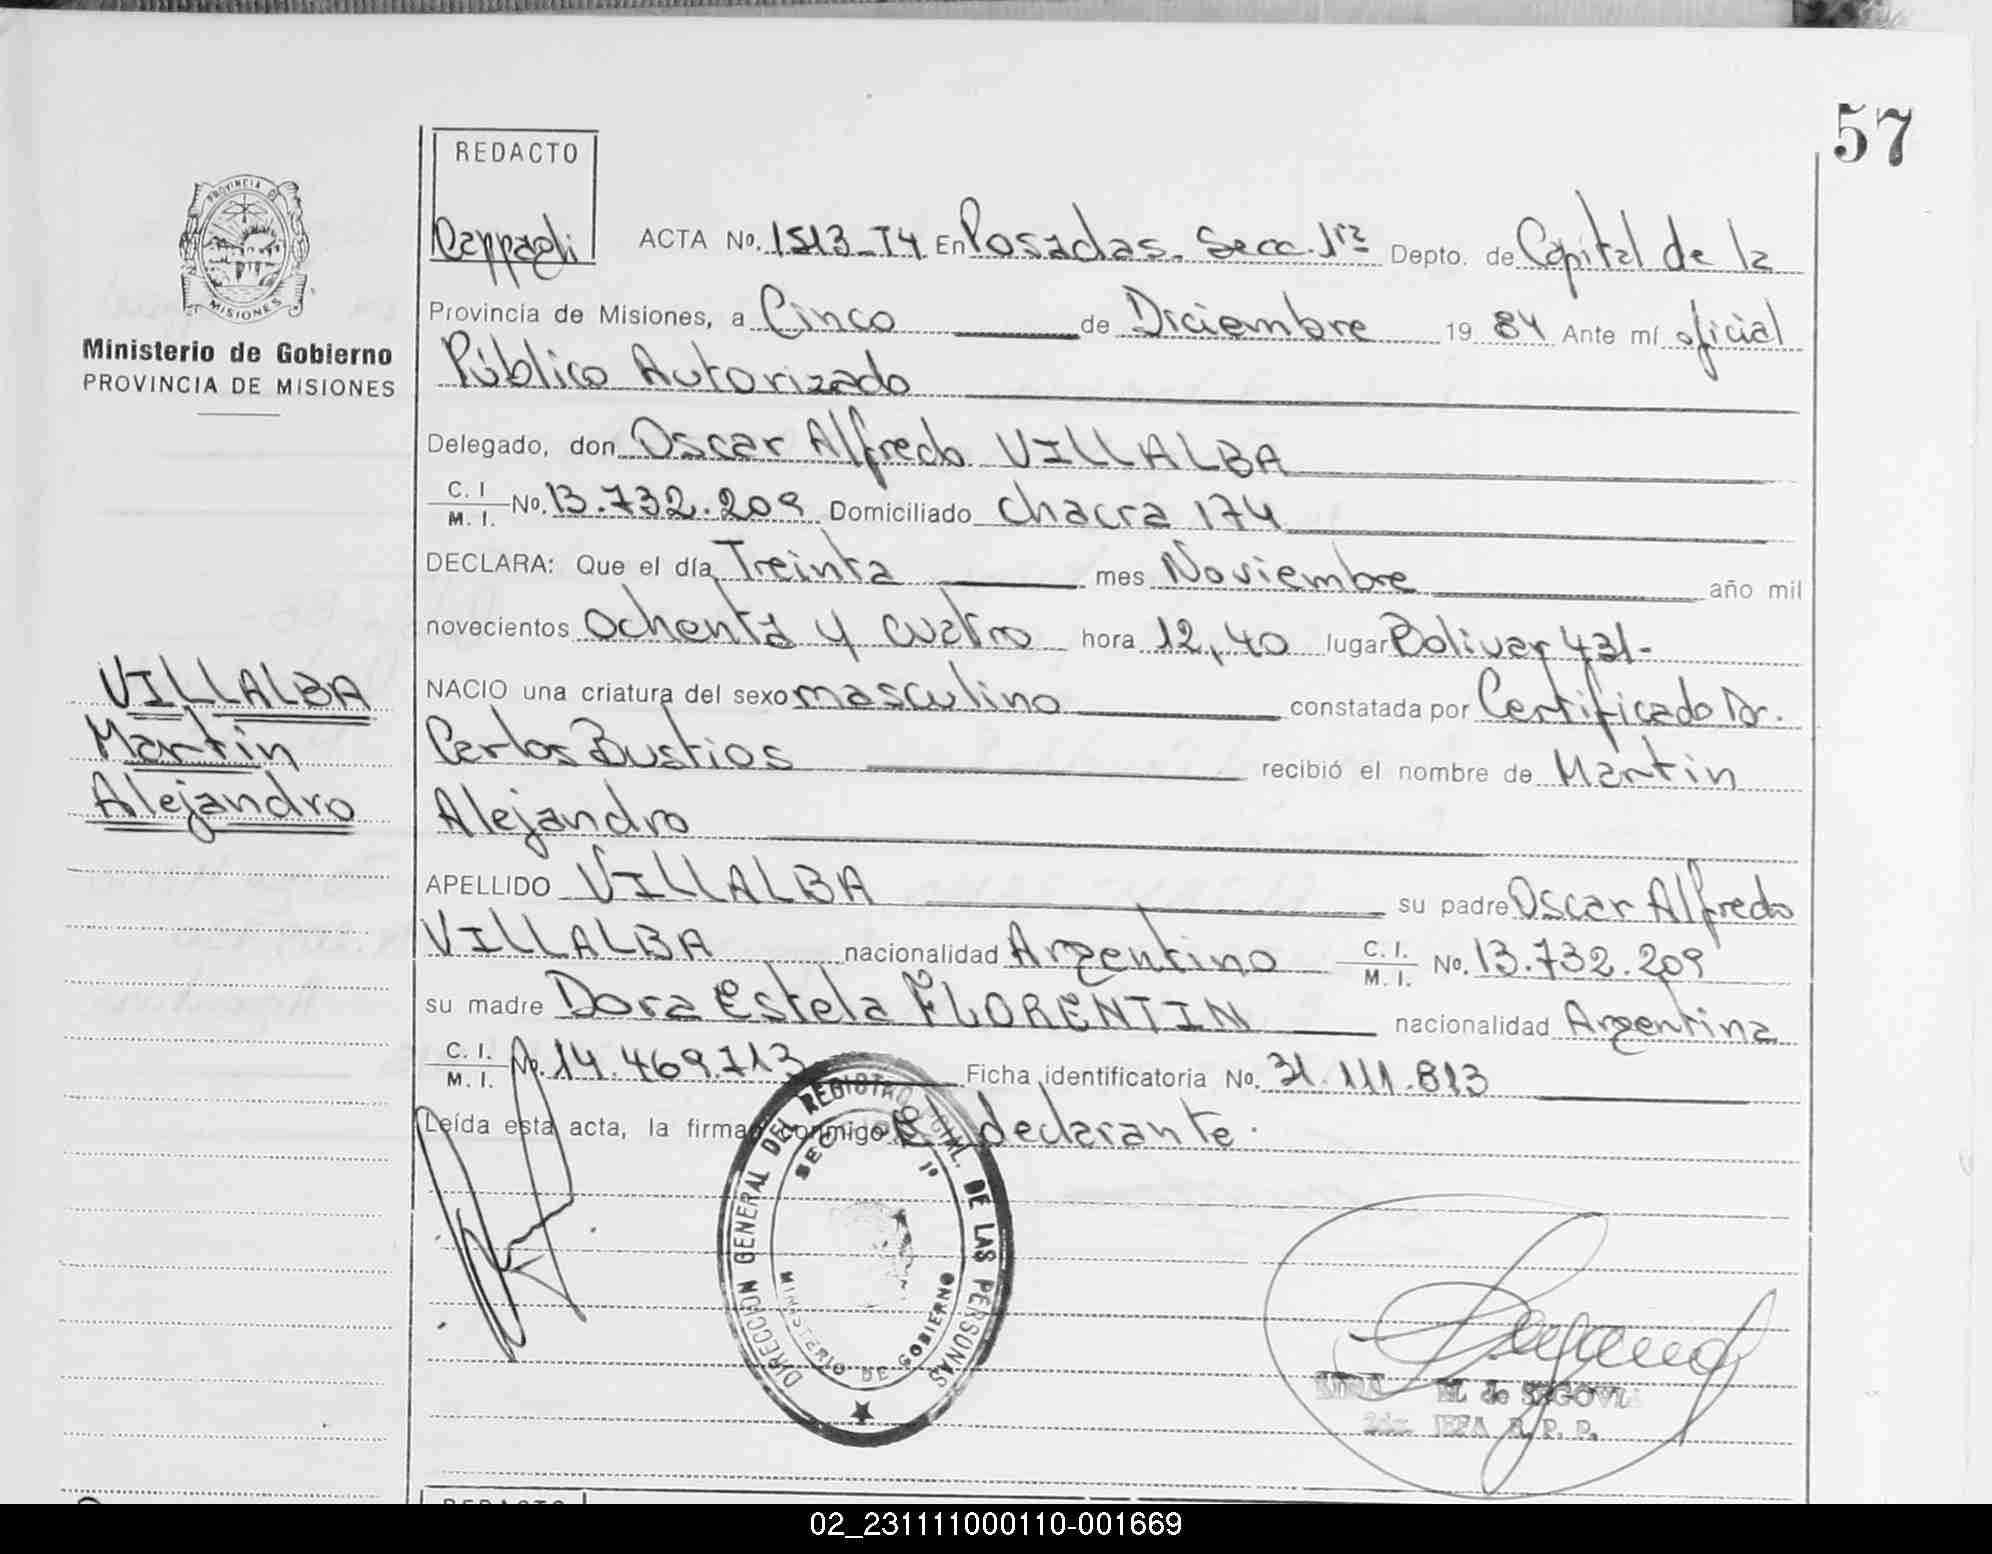 57
REDACTO
PROVINCIA DE
MISIONES
Ministerio de Gobierno
PROVINCIA DE MISIONES
ACTA No. 1513-T4 En Posadas. Secc. 1ra Depto. de Capital de la
Provincia de Misiones, a Cinco de Diciembre 1984 Ante mí oficial
Público Autorizado
Delegado, don Oscar Alfredo VILLALBA
C. I. M. I. No. 13.732.209 Domiciliado chacra 174
DECLARA: Que el día Treinta mes Noviembre año mil
novecientos ochenta y cuatro hora 12,40 lugar Bolivar 431-
VILLALBA
Martin
Alejandro
NACIO una criatura del sexo masculino constatada por Certificado Dr.
Carlos Bustios recibió el nombre de Martin
Alejandro
APELLIDO VILLALBA su padre Oscar Alfredo
VILLALBA nacionalidad Argentino C. I. M. I. No. 13.732.209
su madre Dora Estela FLORENTIN nacionalidad Argentina
C. I. M. I. No. 14.469.113 Ficha identificatoria No. 31.111.813
Leída esta acta, la firma conmigo El declarante.
DIRECCION GENERAL DEL REGISTRO DE LAS PERSONAS
1º
MINISTERIO DE GOBIERNO
M. de SEGOVIA
JEFA R. P. P.
REDACTO
02_231111000110-001669